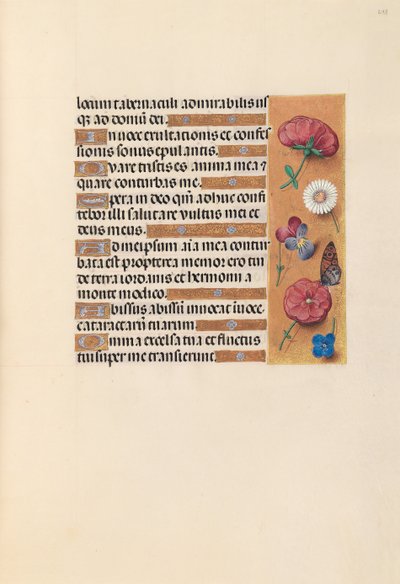 locum tabernaculi admirabilis us
qz ad domum dei.
In voce exultationis et confes
sionis sonus epulantis.
Quare tristis es anima mea z
quare conturbas me.
Spera in deo qm̄ adhuc confi
tebor illi salutare vultus mei et
deus meus.
Ad meipsum aīa mea contur
bata est propterea memor ero tui
de terra iordanis et hermonii a
monte modico.
Abissus abissū invocat in voce
cataractarū tuarum.
Omnia excelsa tua et fluctus
tui super me transierunt.